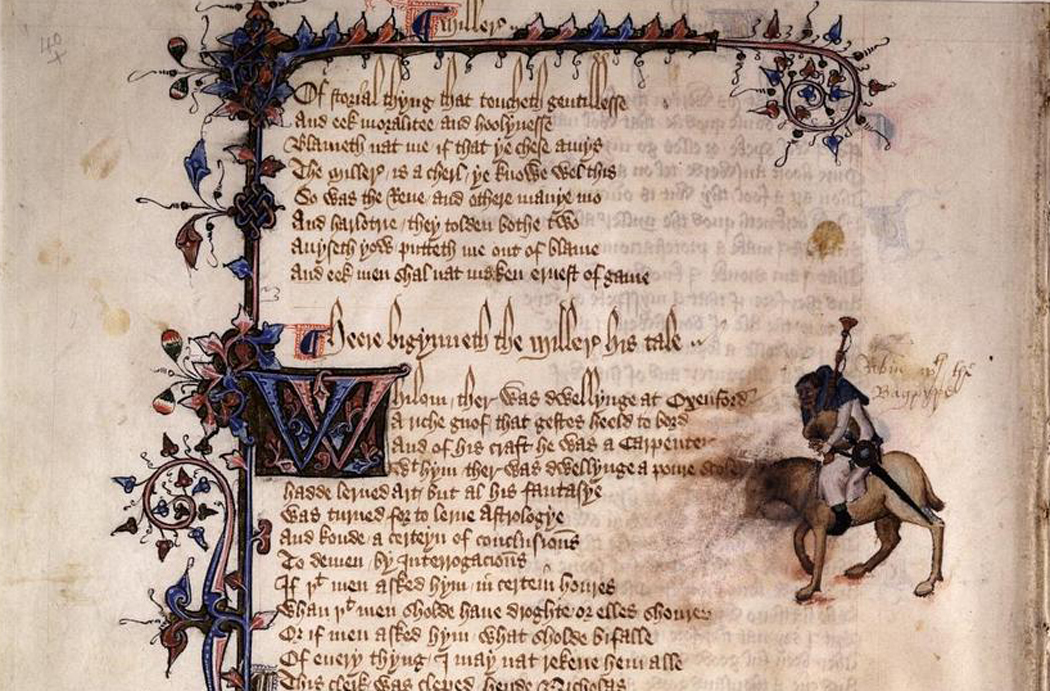 Miller
Of storial thyng that toucheth gentillesse
And eek moralitee and hoolynesse
Blameth nat me if that ye chese amys
The Miller is a cherl / ye knowe wel this
So was the Reue and othere manye mo
And harlotrie / they tolden bothe two
Auyseth yow putteth me out of blame
And eek men shal nat maken ernest of game
Heere bigynneth the Miller his tale
Whilom / ther was dwellynge at Oxenford
A riche gnof that gestes heeld to bord
And of his craft he was a Carpenter
Wt hym ther was dwellynge a poure scoler
hadde lerned Art / but al his fantasye
Was turned for to lerne Astrologye
And koude a certeyn of conclusions
To demen / by Interrogacions
If þt men asked hym / in certein houres
Whan þt men sholde haue droghte or elles shoures
Or if men asked hym / what sholde bifalle
Of euery thyng / I may nat rekene hem alle
This clerk was cleped / hende Nicholas
Robin wth the
Bagpype